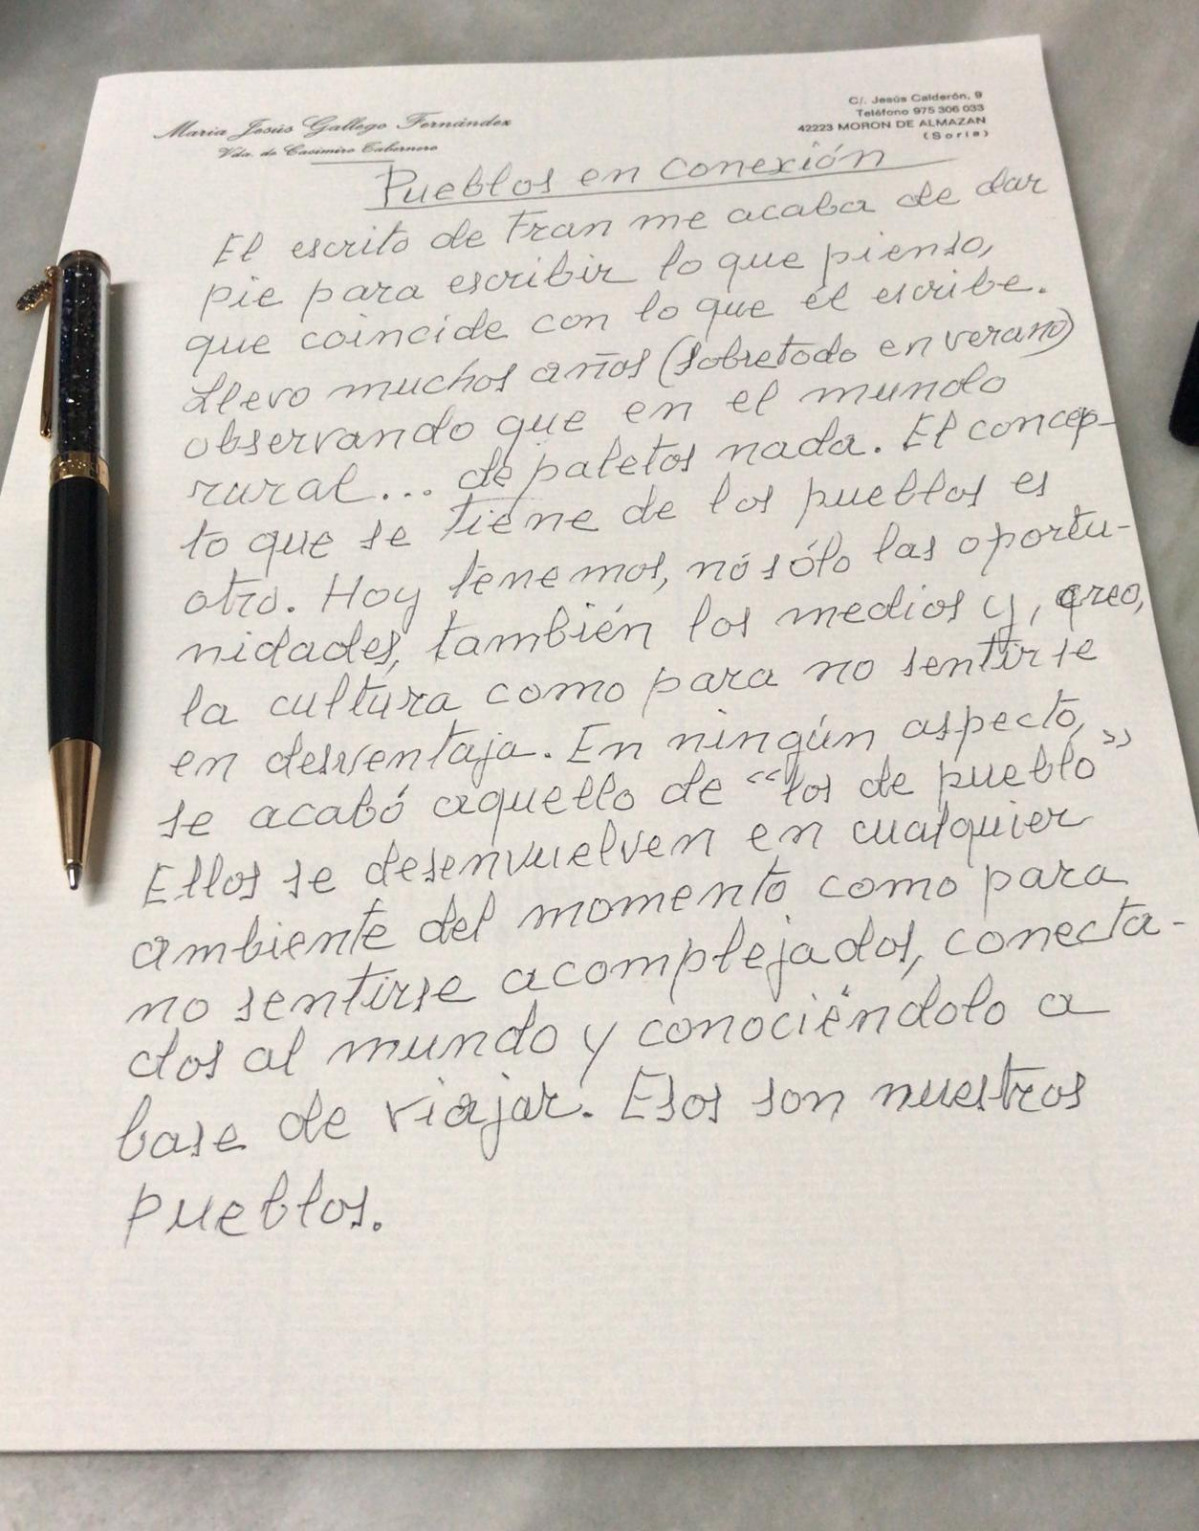 María Jesús Gallego Fernández
Vda. de Casimiro Cabernero
C/. Jesús Calderón, 9
Teléfono 975 306 033
42223 MORON DE ALMAZAN
(Soria)
Pueblos en conexión
El escrito de Fran me acaba de dar
pie para escribir lo que pienso,
que coincide con lo que él escribe.
Llevo muchos años (sobretodo en verano)
observando que en el mundo
rural... de paletos nada. El concep-
to que se tiene de los pueblos es
otro. Hoy tenemos, nó sólo las oportu-
nidades, también los medios y, creo,
la cultura como para no sentirse
en desventaja. En ningún aspecto,
se acabó aquello de “los de pueblo”
Ellos se desenvuelven en cualquier
ambiente del momento como para
no sentirse acomplejados, conecta-
dos al mundo y conociéndolo a
base de viajar. Esos son nuestros
pueblos.